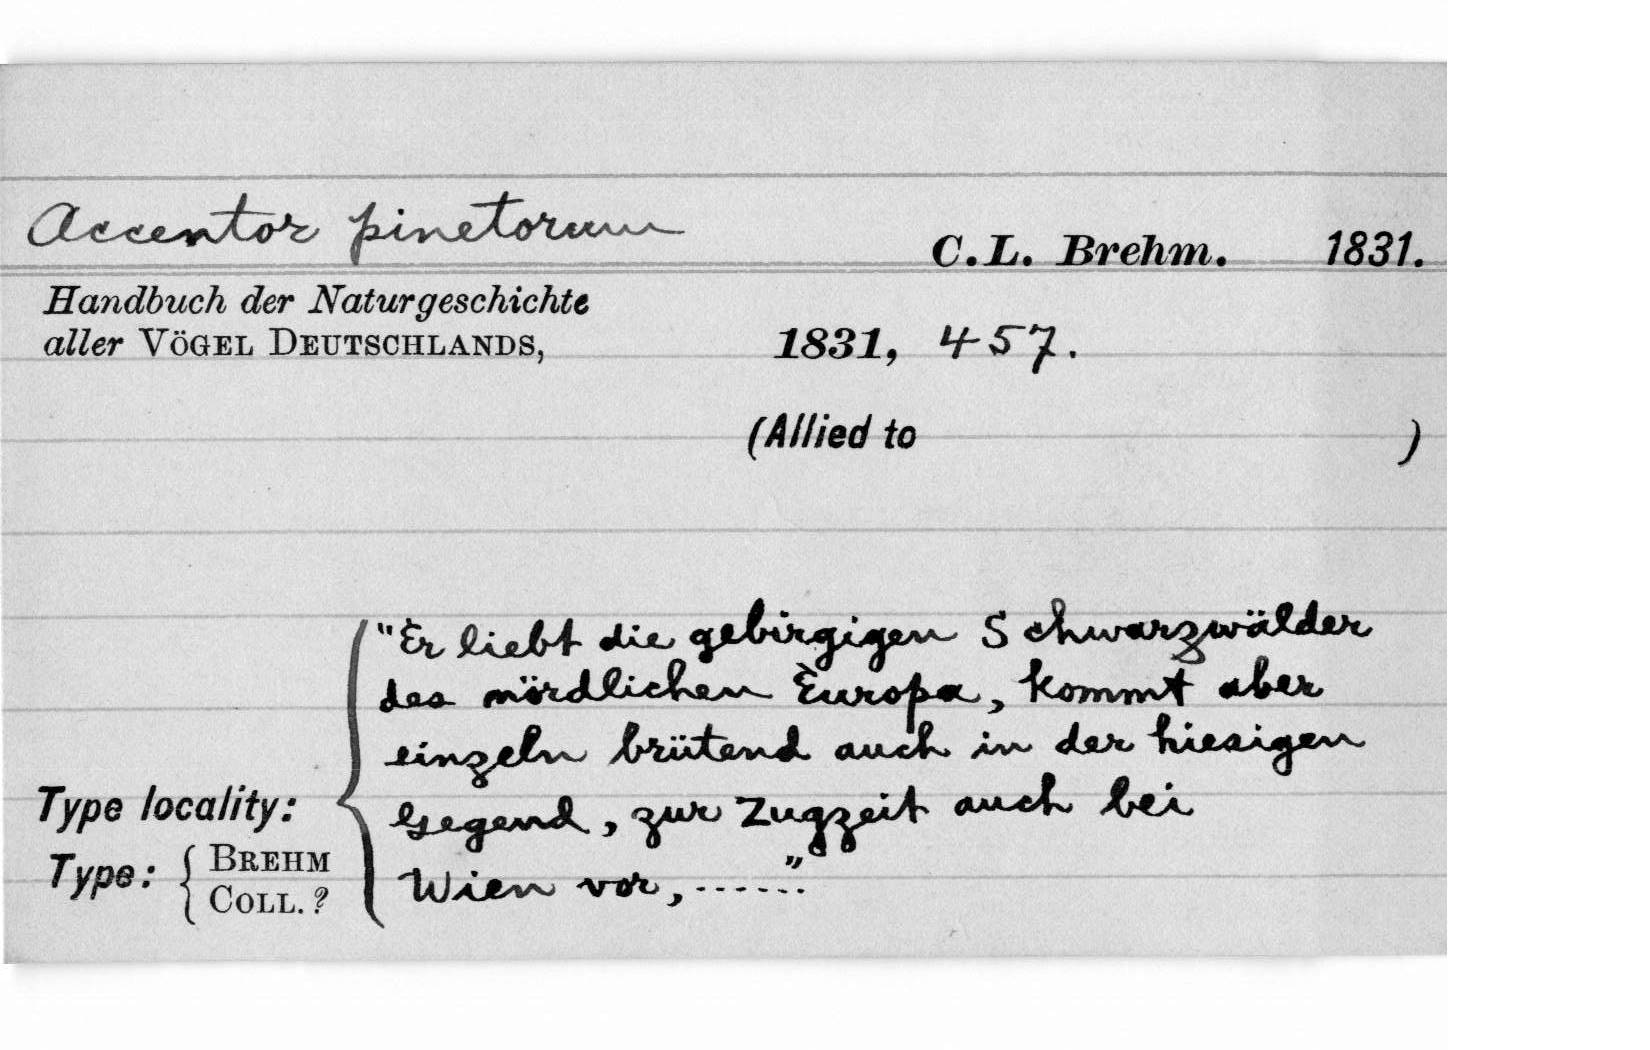 Accentor pinetorum C.L. Brehm. 1831.
Handbuch der Naturgeschichte
aller Vögel Deutschlands, 1831, 457.
(Allied to )
"Er liebt die gebirgigen Schwarzwälder
des nördlichen Europa, kommt aber
einzeln brütend auch in der hiesigen
Gegend, zur Zugzeit auch bei
Wien vor, ......."
Type locality:
Type: { Brehm
Coll. ?